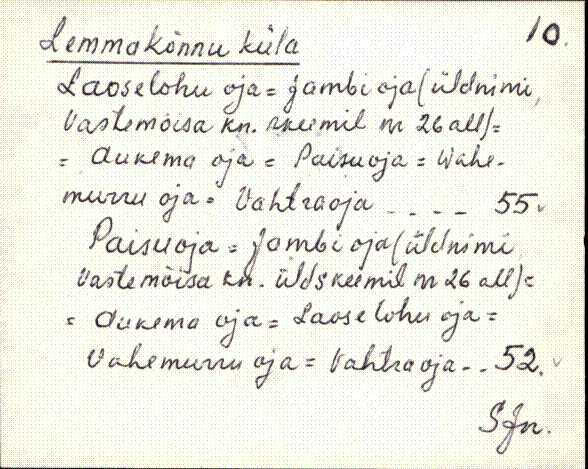 10.
Lemmakõnnu küla
Laoselohu oja = Jambi oja (üldnimi,
Vastemõisa kn. skeemil nr 26 all) =
= Aukema oja = Paisuoja = Wahe-
murru oja = Vahtraoja _ _ _ _ 55.
Paisuoja = Jambi oja (üldnimi
Vastemõisa kn. üldskeemil nr 26 all) =
= Aukema oja = Laoselohu oja =
Vahemurru oja = Vahtraoja - - 52.